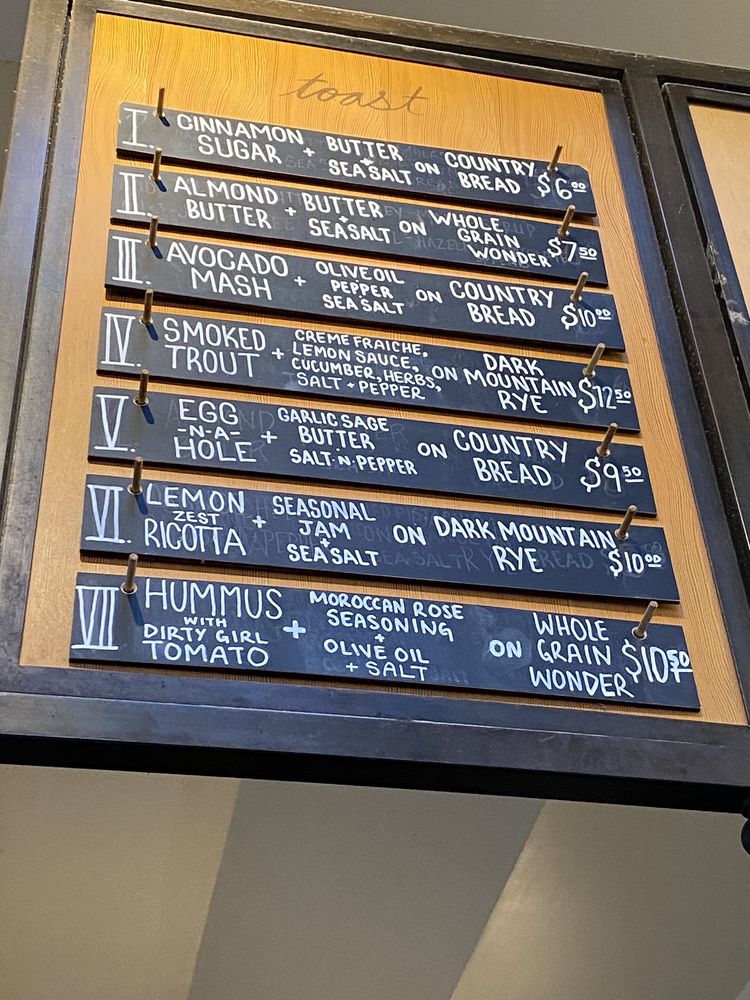 toast
I. CINNAMON SUGAR + BUTTER + SEA SALT ON COUNTRY BREAD $6.00
II. ALMOND BUTTER + BUTTER + SEA SALT ON WHOLE GRAIN WONDER $7.50
III. AVOCADO MASH + OLIVE OIL PEPPER SEA SALT ON COUNTRY BREAD $10.00
IV. SMOKED TROUT + CREME FRAICHE, LEMON SAUCE, CUCUMBER, HERBS, SALT + PEPPER ON DARK MOUNTAIN RYE $12.50
V. EGG -N-A- HOLE + GARLIC SAGE BUTTER SALT-N-PEPPER ON COUNTRY BREAD $9.50
VI. LEMON ZEST RICOTTA + SEASONAL JAM + SEA SALT ON DARK MOUNTAIN RYE $10.00
VII HUMMUS WITH DIRTY GIRL TOMATO + MOROCCAN ROSE SEASONING + OLIVE OIL + SALT ON WHOLE GRAIN WONDER $10.50